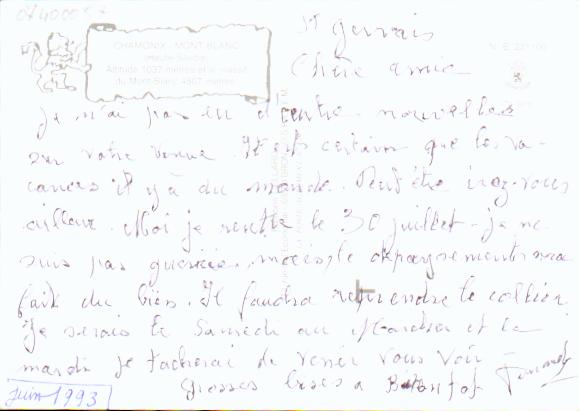 07400057
CHAMONIX - MONT-BLANC
(Haute Savoie)
Altitude 1037 mètres et le massif
du Mont Blanc 4807 mètres
St gervais
Chère amie
je n'ai pas eu d'entre nouvelles
sur votre venue. Il est certain que les va-
cances il y à du monde. Peut être irez-vous
ailleur. Moi je rentre le 30 juillet. je ne
suis pas guérie, mais le dépaysement m'a
fait du bien. Il faudra reprendre le collier
Je serais le Samedi au Marché et la
mardi je tacherai de venir vous voir
Grosses bises a Bientot
Juin 1993